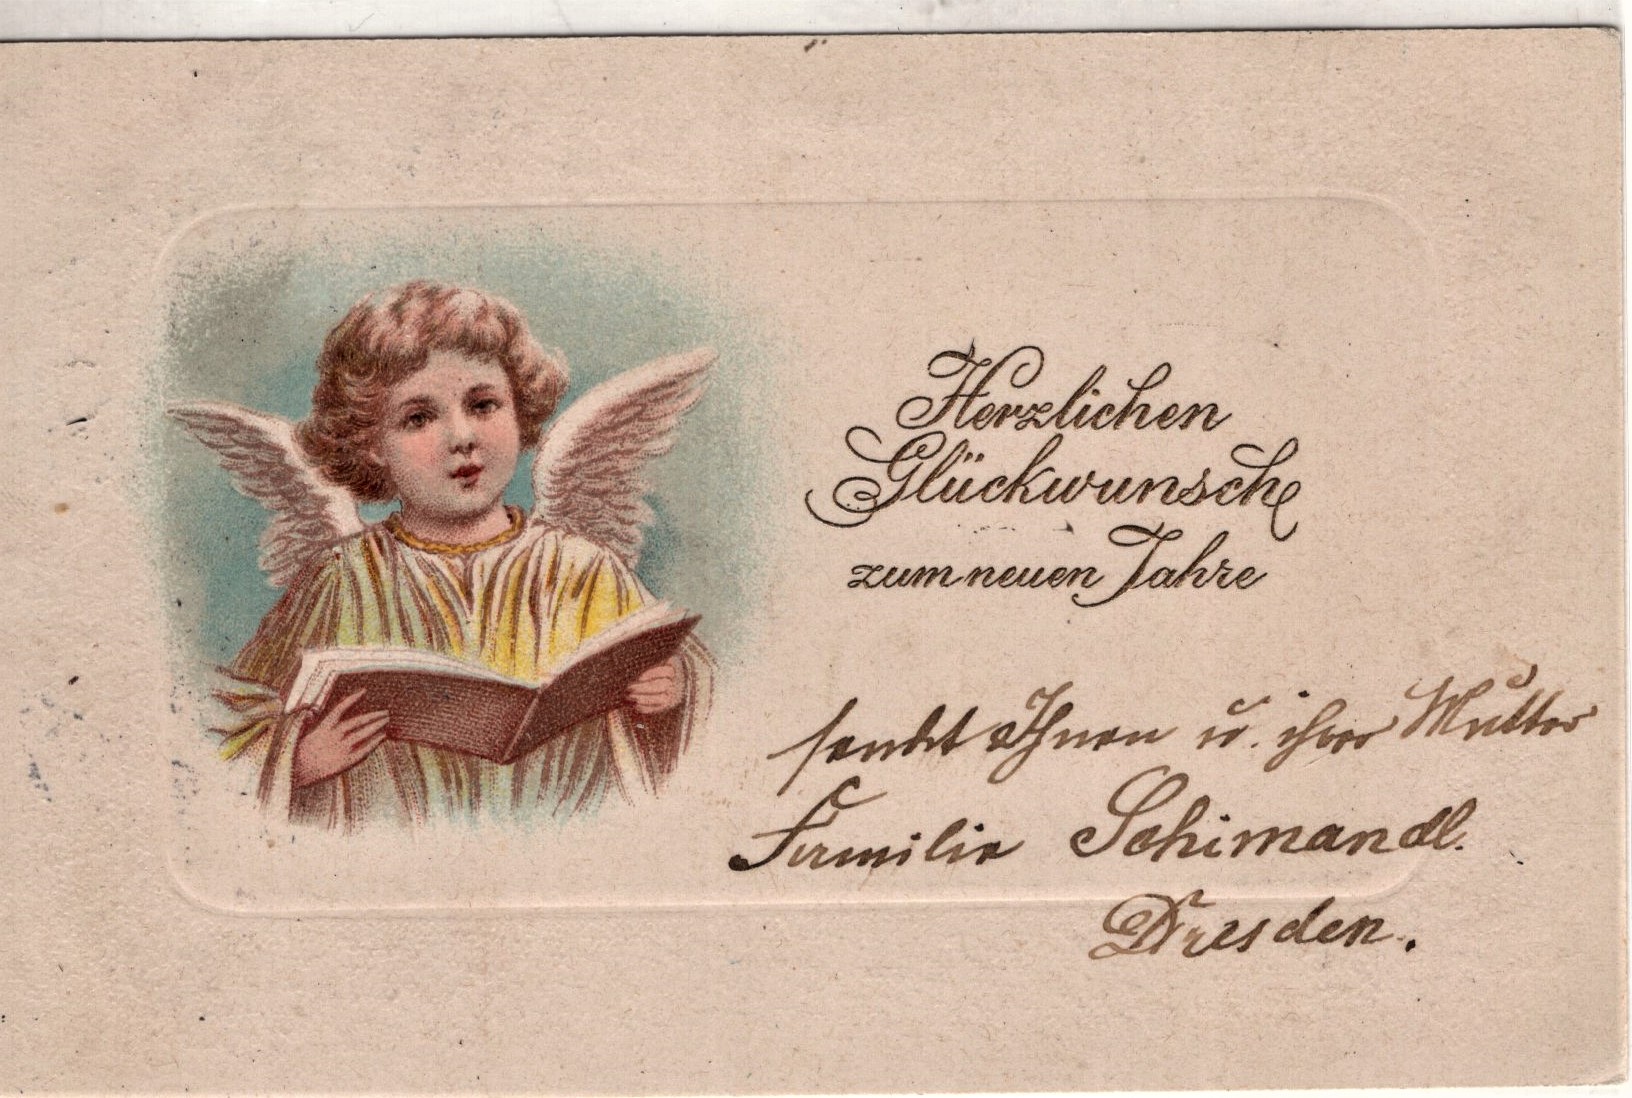 Herzlichen
Glückwunsch
zum neuen Jahre
sendet Ihnen u. ihrer Mutter
Familie Schimandl.
Dresden.